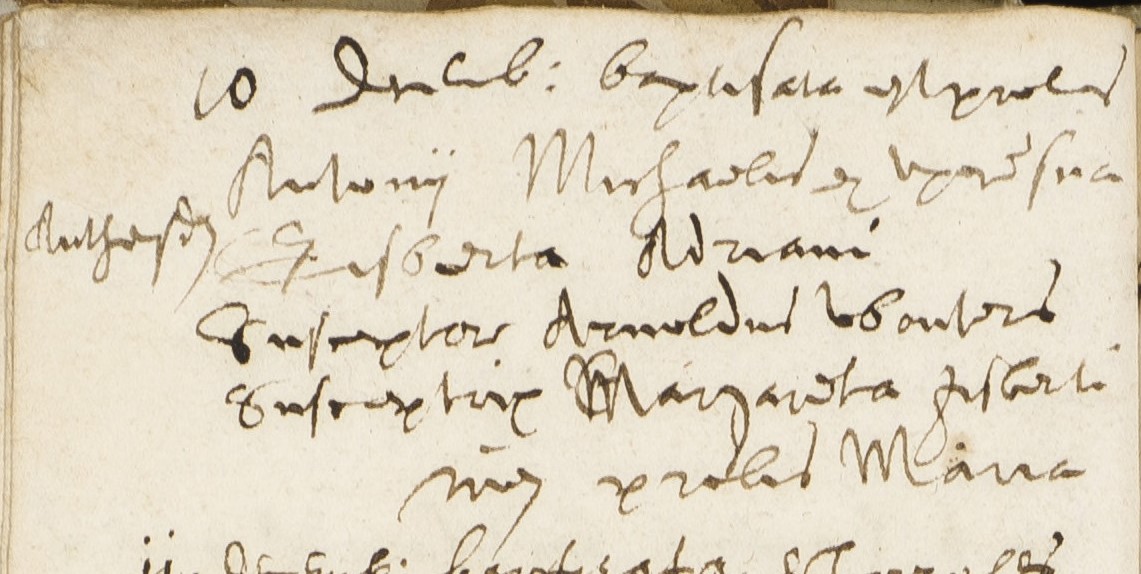 10 Decemb: baptisata est proles
Antonij Michaelis ex uxore sua
Gisberta Adriani
Susceptor Arnoldus Wouters
Susceptrix Margareta Gisberti
proles Maria
11 decemb: baptisata est proles